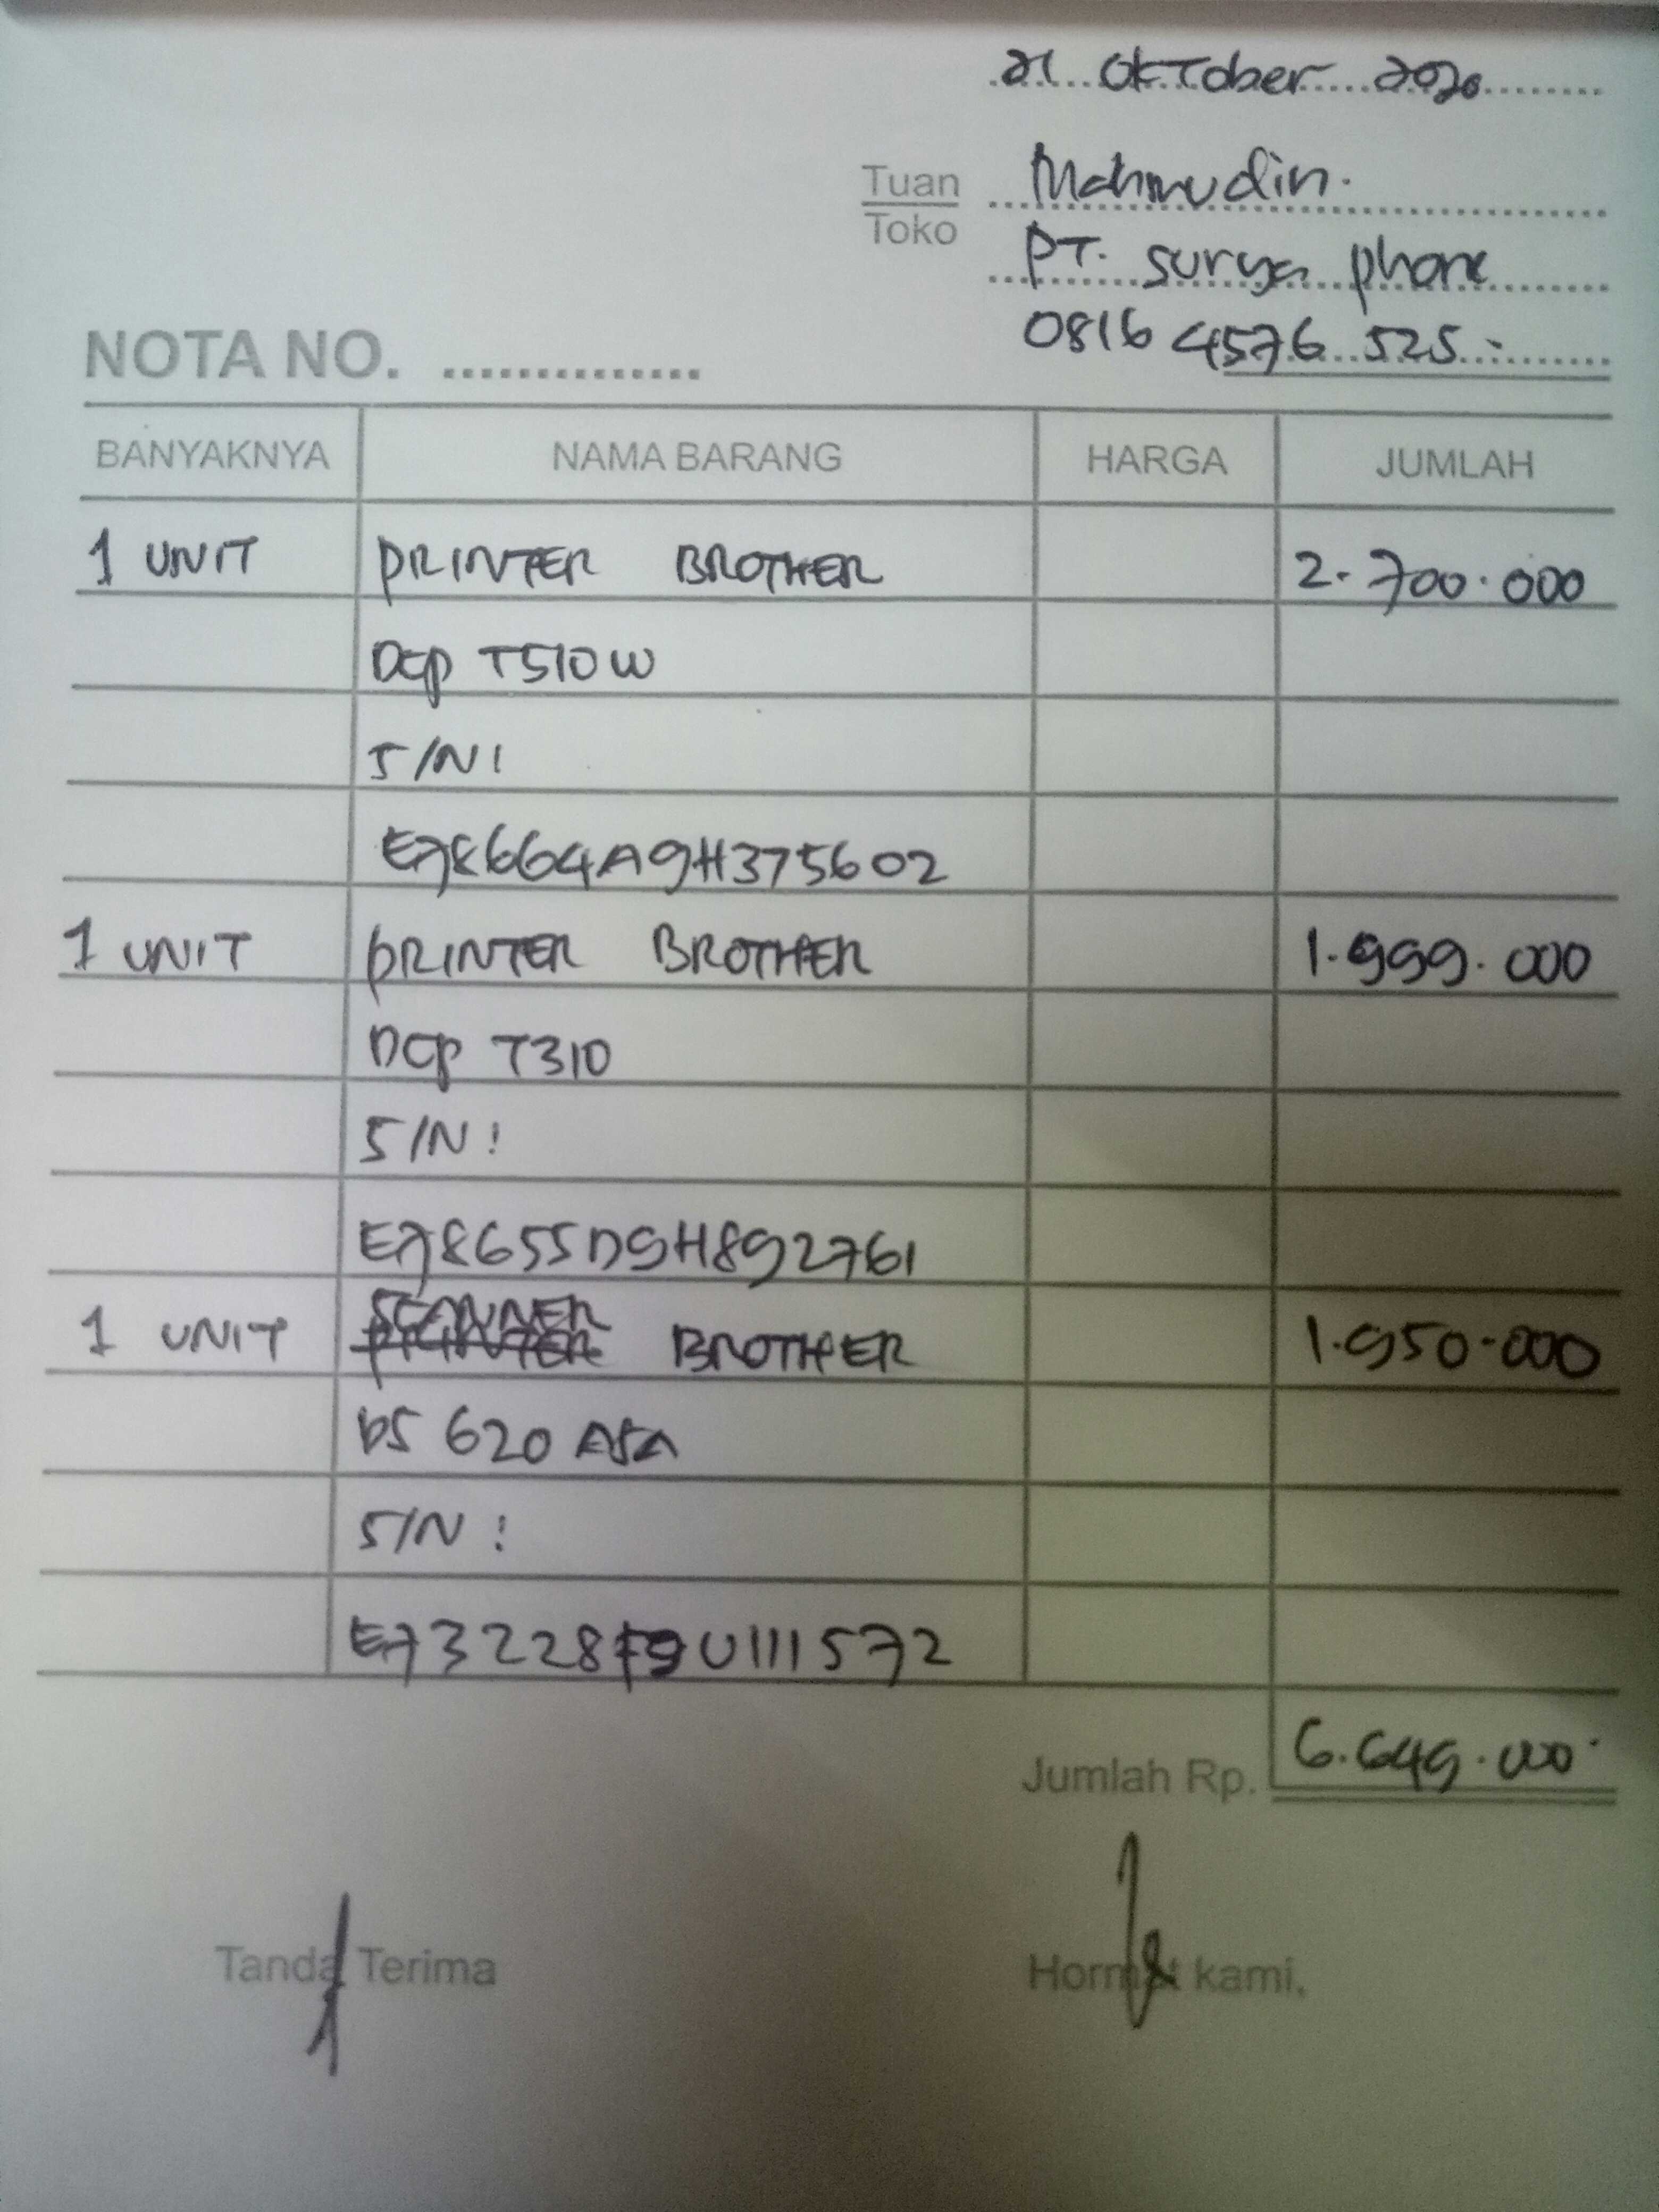 21 Oktober 2020
Tuan Mahmudin.
Toko PT. surya phone
0816 4576 525.-
NOTA NO. ..............
BANYAKNYA NAMA BARANG HARGA JUMLAH
1 UNIT PRINTER BROTHER 2.700.000
Dcp T510W
S/N:
E78664A9H375602
1 UNIT PRINTER BROTHER 1.999.000
Dcp T310
S/N:
E78655D9H892761
SCANNER
1 UNIT PRINTER BROTHER 1.950.000
DS 620 ASA
S/N:
E73228F9U111572
Jumlah Rp. 6.649.000
Tanda Terima Hormat kami,